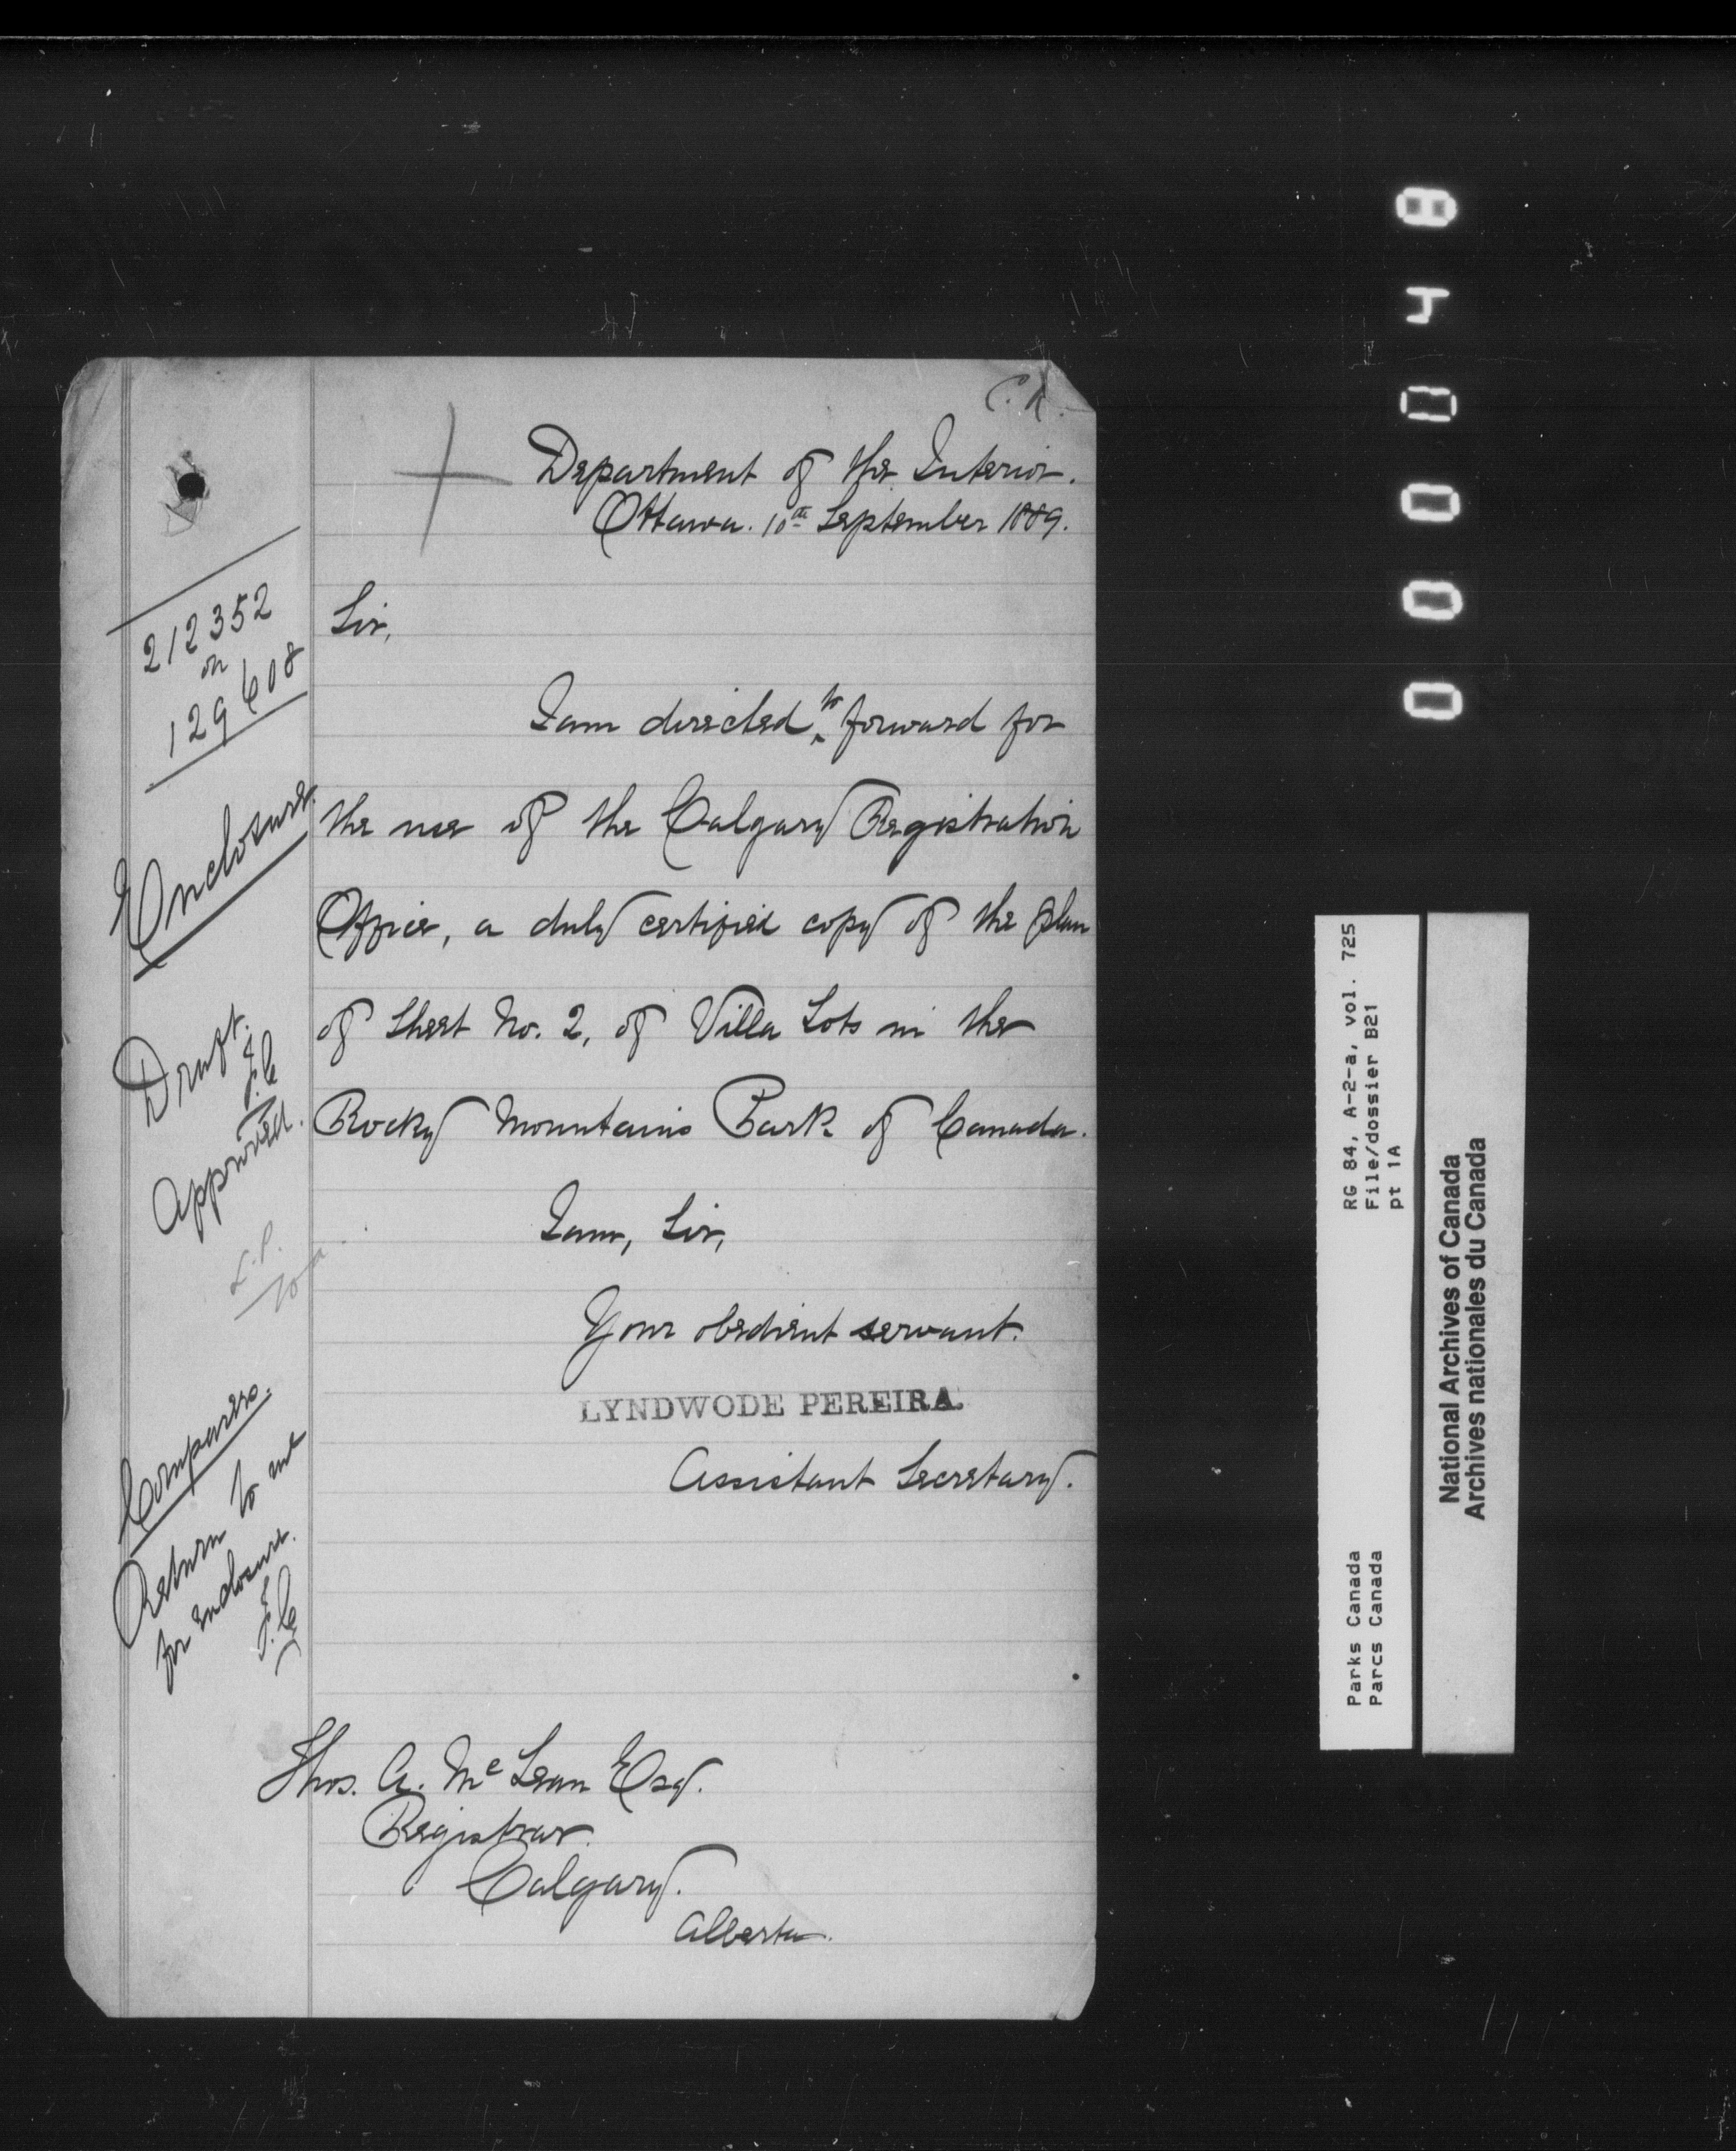 C. R.
Department of the Interior.
Ottawa. 10th September 1889.
212352
on
129608
Sir,
I am directed to forward for
the use of the Calgary Registration
Office, a duly certified copy of the plan
of Sheet No. 2, of Villa Lots in the
Rocky Mountains Park of Canada.
I am, Sir,
Your obedient servant.
LYNDWODE PEREIRA.
Assistant Secretary.
Enclosure.
Draft.
J.C
Approved.
L.P.
10
Compares.
Return to me
for enclosure.
J.C
Thos. A. McLean Esq.
Registrar.
Calgary.
Alberta.
000048
RG 84, A-2-a, vol. 725
File/dossier B21
pt 1A
Parks Canada
Parcs Canada
National Archives of Canada
Archives nationales du Canada